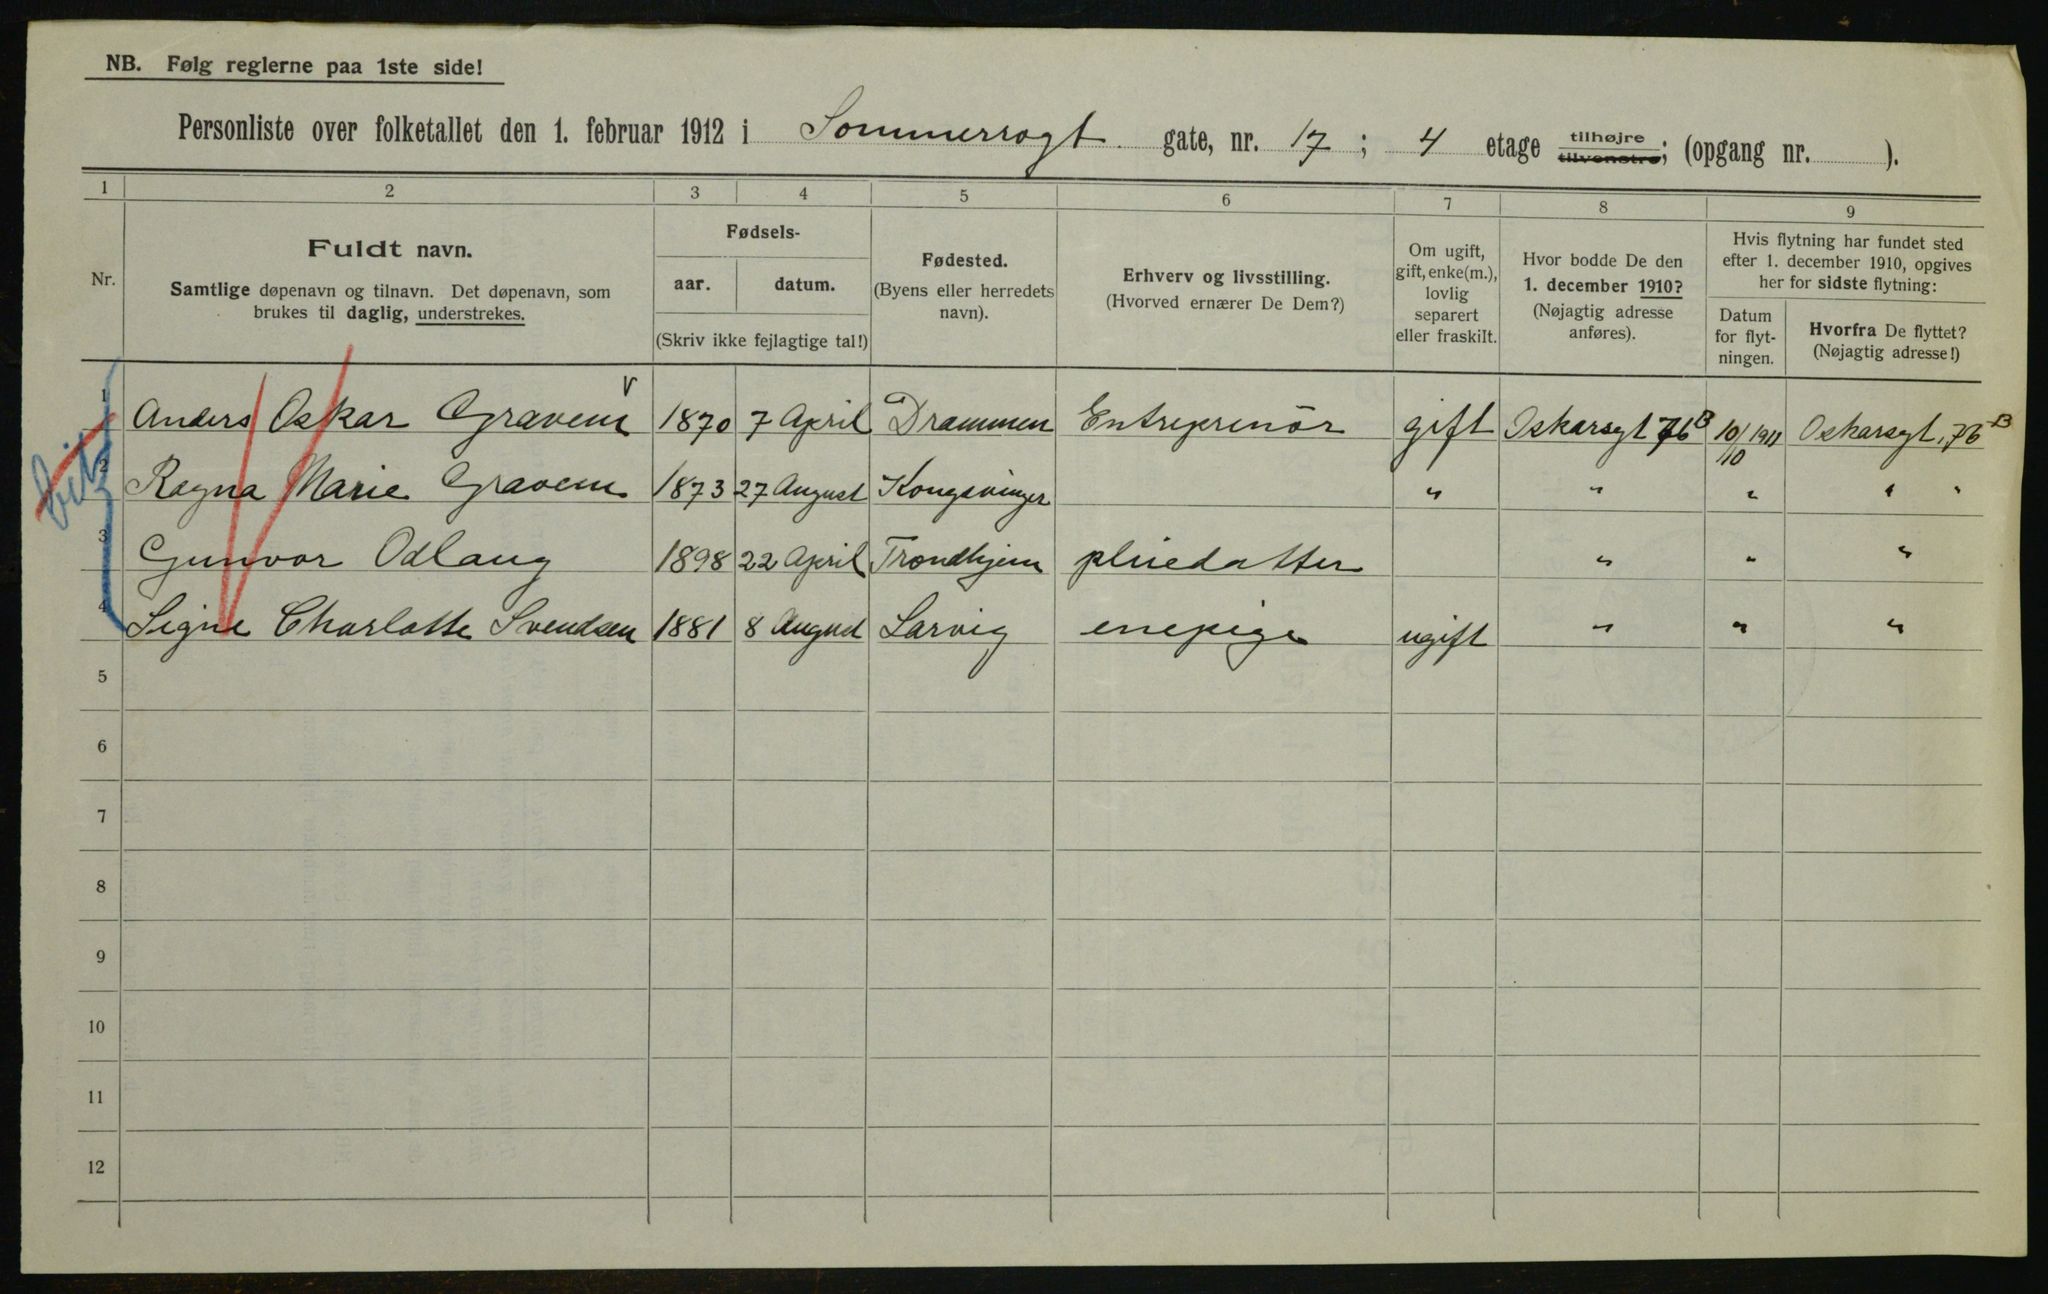 NB. Følg reglerne paa 1ste side!
Personliste over folketallet den 1. februar 1912 i Sommerrogt. gate, nr. 17; 4 etage tilhøjre tilvenstre; (opgang nr. ).
1 2 3 4 5 6 7 8 9
Nr.
Fuldt navn.
Samtlige døpenavn og tilnavn. Det døpenavn, som
brukes til daglig, understrekes.
Fødsels-
aar. datum.
(Skriv ikke fejlagtige tal!)
Fødested.
(Byens eller herredets
navn).
Erhverv og livsstilling.
(Hvorved ernærer De Dem?)
Om ugift,
gift, enke(m.),
lovlig
separert
eller fraskilt.
Hvor bodde De den
1. december 1910?
(Nøjagtig adresse
anføres).
Hvis flytning har fundet sted
efter 1. december 1910, opgives
her for sidste flytning:
Datum
for flyt-
ningen.
Hvorfra De flyttet?
(Nøjagtig adresse!)
1 Anders Oskar Gravem 1870 7 April Drammen Entreprenör gift Oskarsgt 76B 10/10 1911 Oskarsgt. 76 B
2 Ragna Marie Gravem 1873 27 August Kongsvinger " " " " "
3 Gunvor Odlaug 1898 22 April Trondhjem pliedatter " " "
4 Signe Charlotte Svendsen 1881 8 August Larvig enepige ugift " " "
5
6
7
8
9
10
11
12